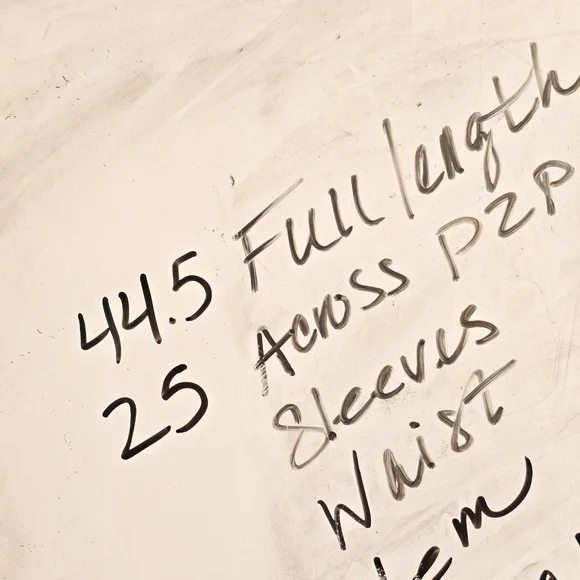 44.5 Full length
25 Across P2P
Sleeves
Waist